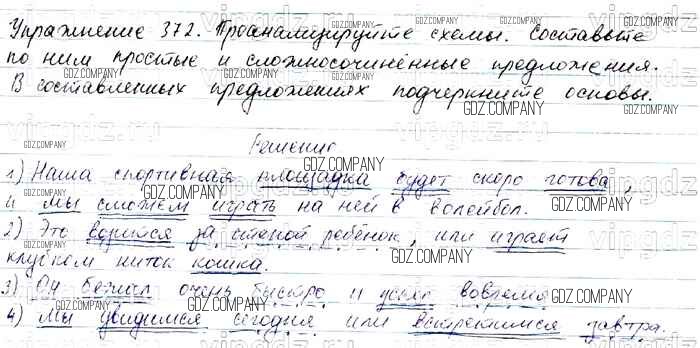 Упражнение 372. Проанализируйте схемы. Составьте
по ним простые и сложносочинённые предложения.
В составленных предложениях подчеркните основы.
Решение
1) Наша спортивная площадка будет скоро готова,
и мы сможем играть на ней в волейбол.
2) Это возится за стеной ребёнок, или играет
клубком ниток кошка.
3) Он бежал очень быстро и успел вовремя
4) Мы увидимся сегодня или встретимся завтра.
GDZ.COMPANY
vipgdz.ru